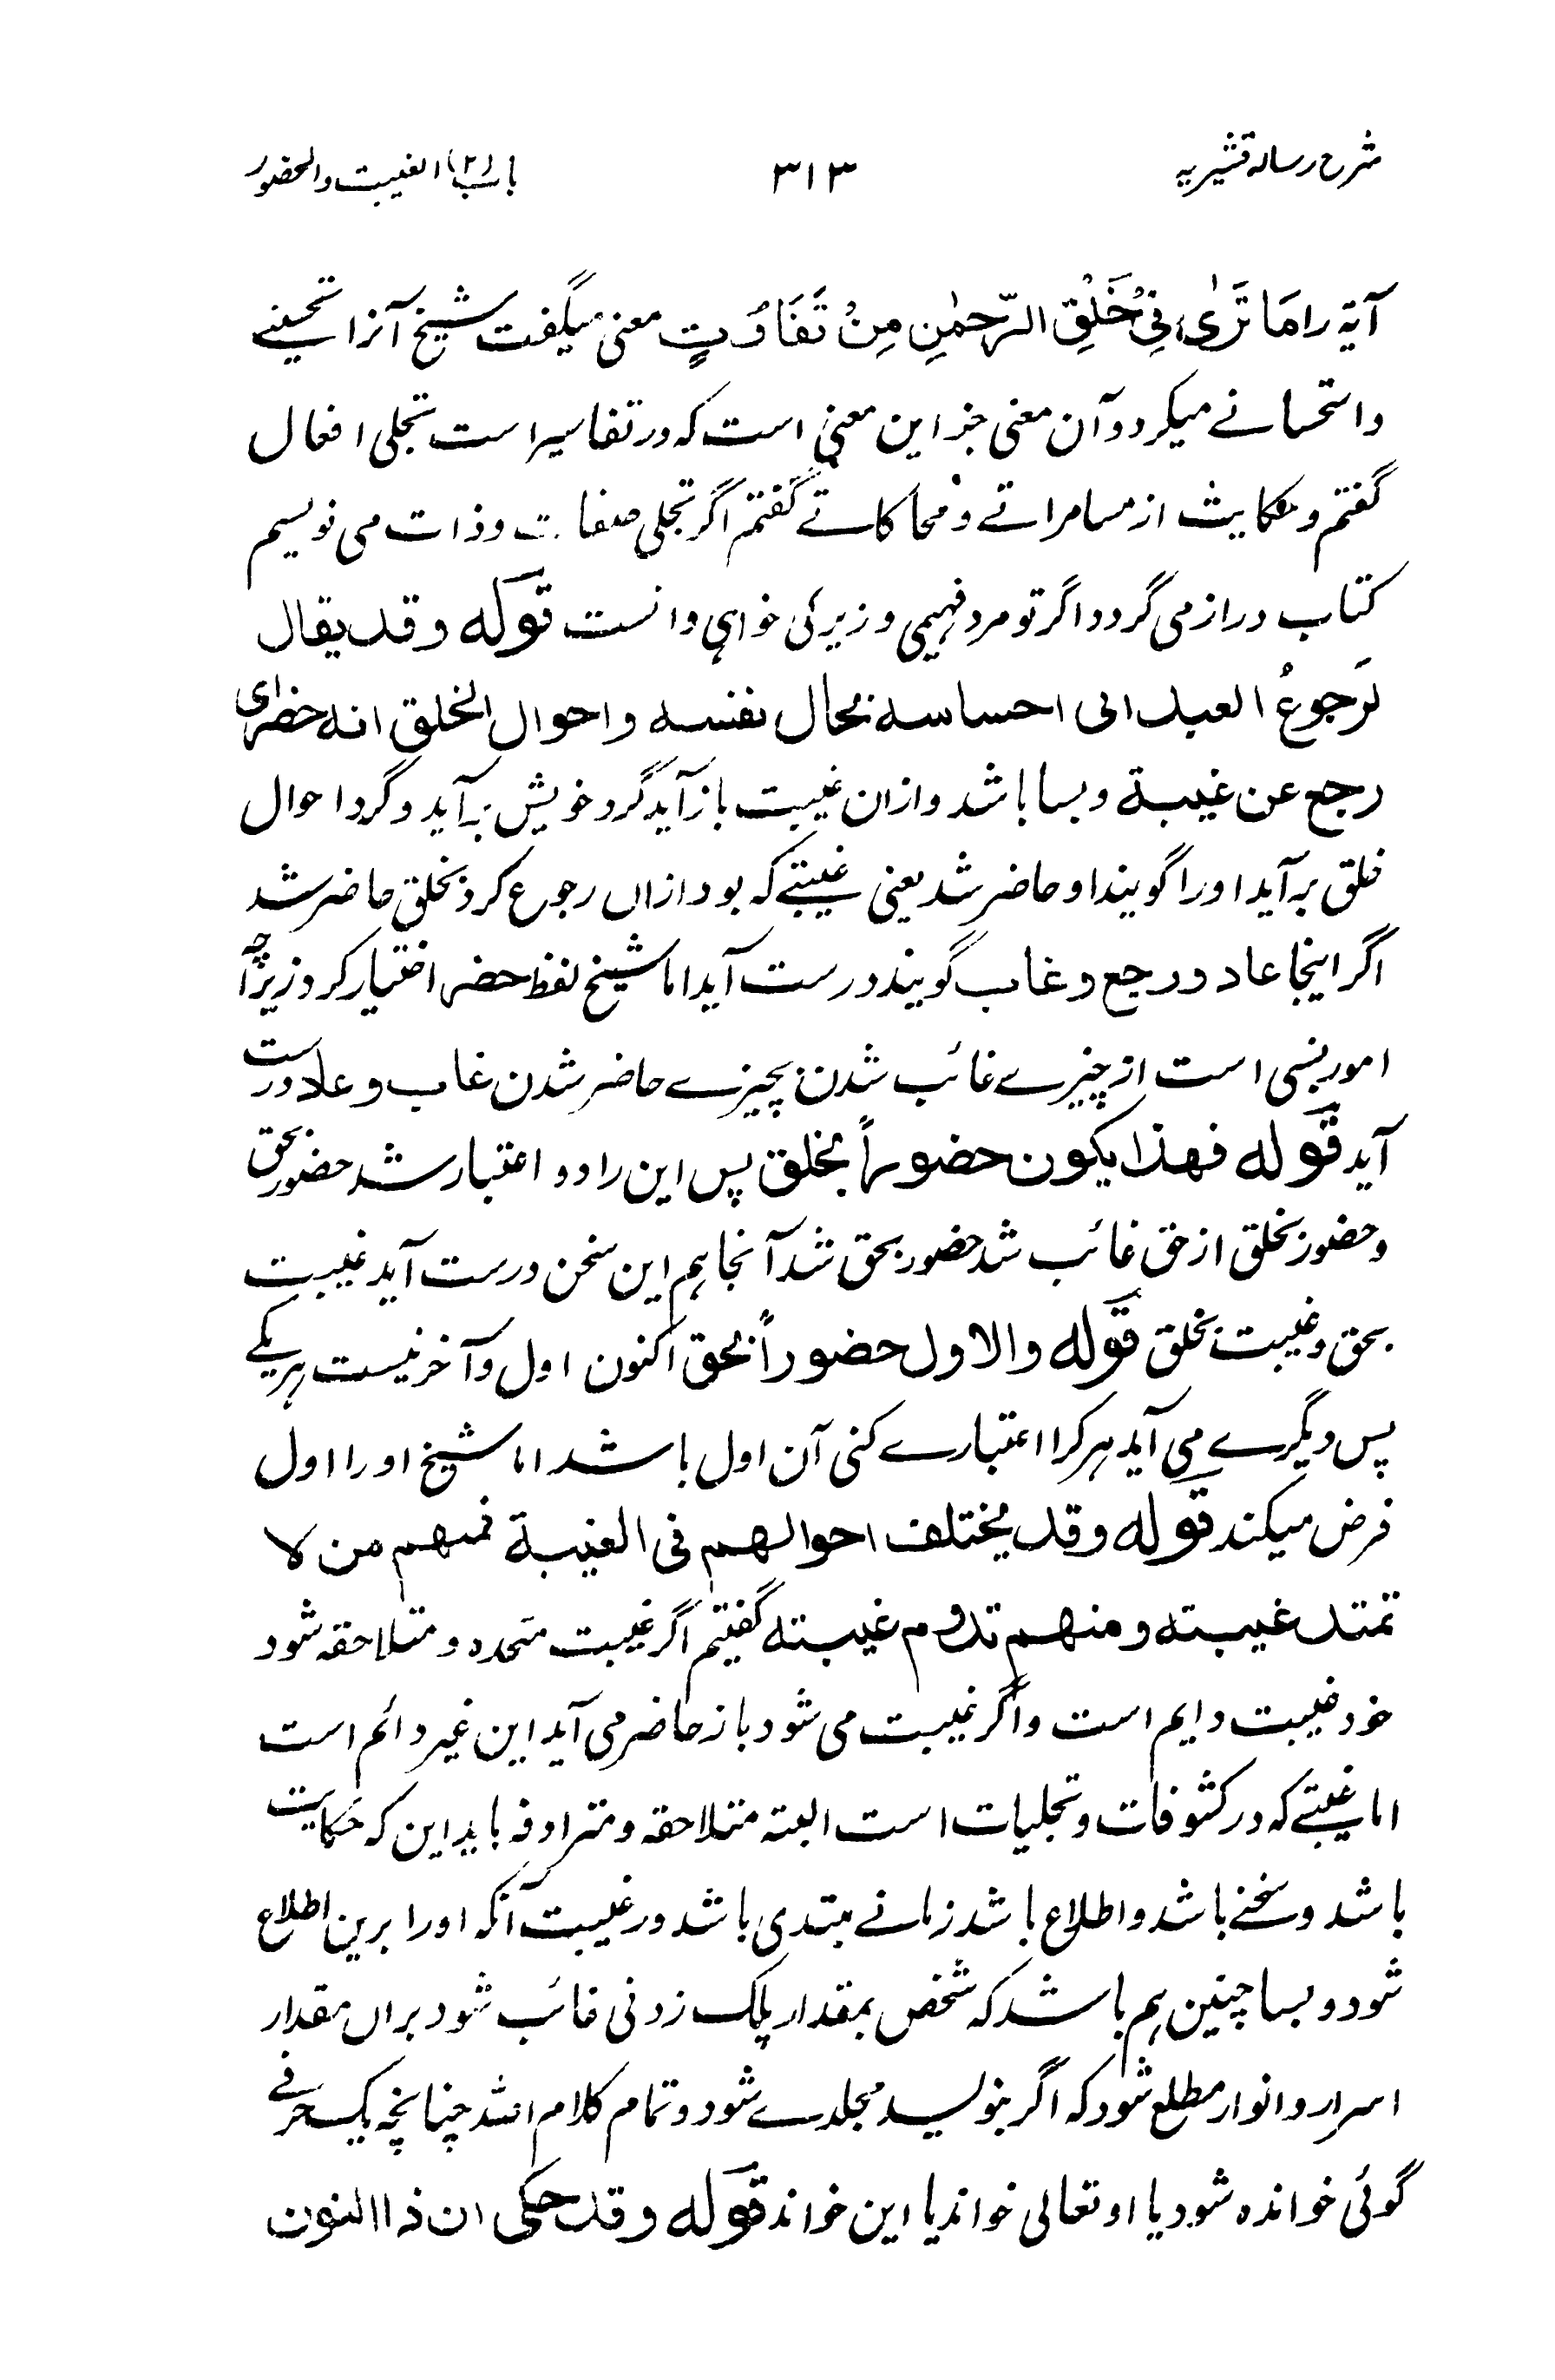 شرح رساله قشیریه ۳۱۳ باب (۲) الغیبت والحضور
آیة را مَا تَرٰی فِیْ خَلْقِ الرَّحمٰنِ مِنْ تَفَاوُتٍ معنی میگفت شیخ آنرا تحسینے
واستحسانے میکرد و آن معنی جز این معنی است که در تفاسیر است تجلی افعال
گفتم و حکایت از مسامراتے و محاکاتے گفتم اگر تجلی صفات و ذات می نویسم
کتاب دراز می گردد اگر تو مرد فهیمی و زیرکی خواهی دانست قوله وقد یقال
لرجوع العبد الی احساسه بحال نفسه واحوال الخلق انه حضر ای
رجع عن غیبة و بسا باشد و ازان غیبت باز آید گرد خویش برآید و گرد احوال
خلق برآید او را گویند او حاضر شد یعنی غیبتے که بود ازاں رجوع کرد بخلق حاضر شد
اگر اینجا عاد و رجع و غاب گویند درست آید اما شیخ لفظ حضر اختیار کرد زیراچه
امور نسبی است از چیزے غائب شدن بچیزے حاضر شدن غاب و عاد درست
آید قوله فهذا یکون حضوراً بخلق پس این را دو اعتبار شد حضور بحق
و حضور بخلق از حق غائب شد حضور بحق شد آنجا هم این سخن درست آید غیبت
بحق و غیبت بخلق قوله والاول حضوراً بحق اکنون اول و آخر نیست هر یکے
پس دیگرے می آید هر کرا اعتبارے کنی آن اول باشد اما شیخ او را اول
فرض میکند قوله وقد یختلف احوالهم فی الغیبة فمنهم من لا
تمتد غیبته ومنهم تدوم غیبته گفتیم اگر غیبت متحده و متلاحقه شود
خود غیبت دایم است و اگر غیبت می شود باز حاضر می آید این غیر دائم است
اما غیبتے که در کشوفات و تجلیات است البته متلاحقه و مترادفه باید این که حکایت
باشد و سخنے باشد و اطلاع باشد زمانے مبتدی باشد در غیبت آنکه او را برین اطلاع
شود و بسا چنین هم باشد که شخص بمقدار پلک زدنی غائب شود براں مقدار
اسرار و انوار مطلع شود که اگر بنویسد مجلدے شود و تمام کلام الله چنانچه یک حرفے
گوئی خوانده شود یا او تعالی خواند یا این خواند قوله وقد حکی ان ذا النون